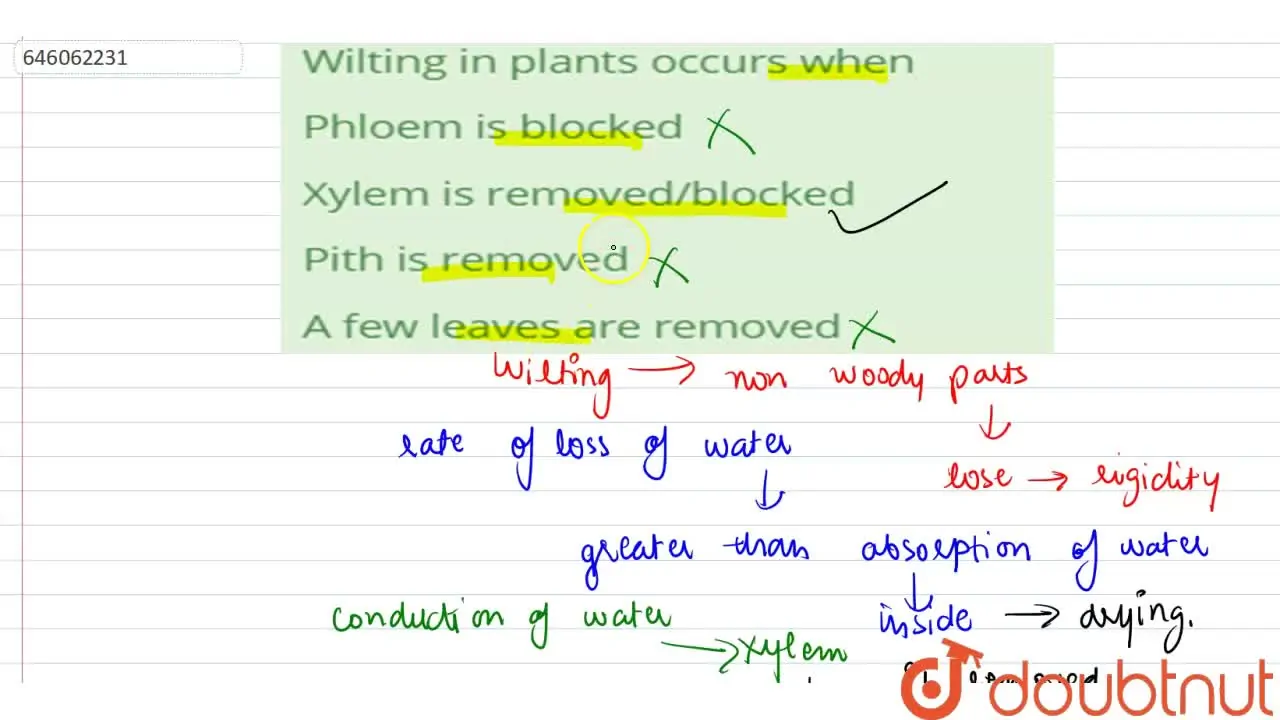 646062231
Wilting in plants occurs when
Phloem is blocked
Xylem is removed/blocked
Pith is removed
A few leaves are removed
Wilting → non woody parts
rate of loss of water
lose → rigidity
greater than absorption of water
conduction of water
inside → drying.
→ xylem
doubtnut